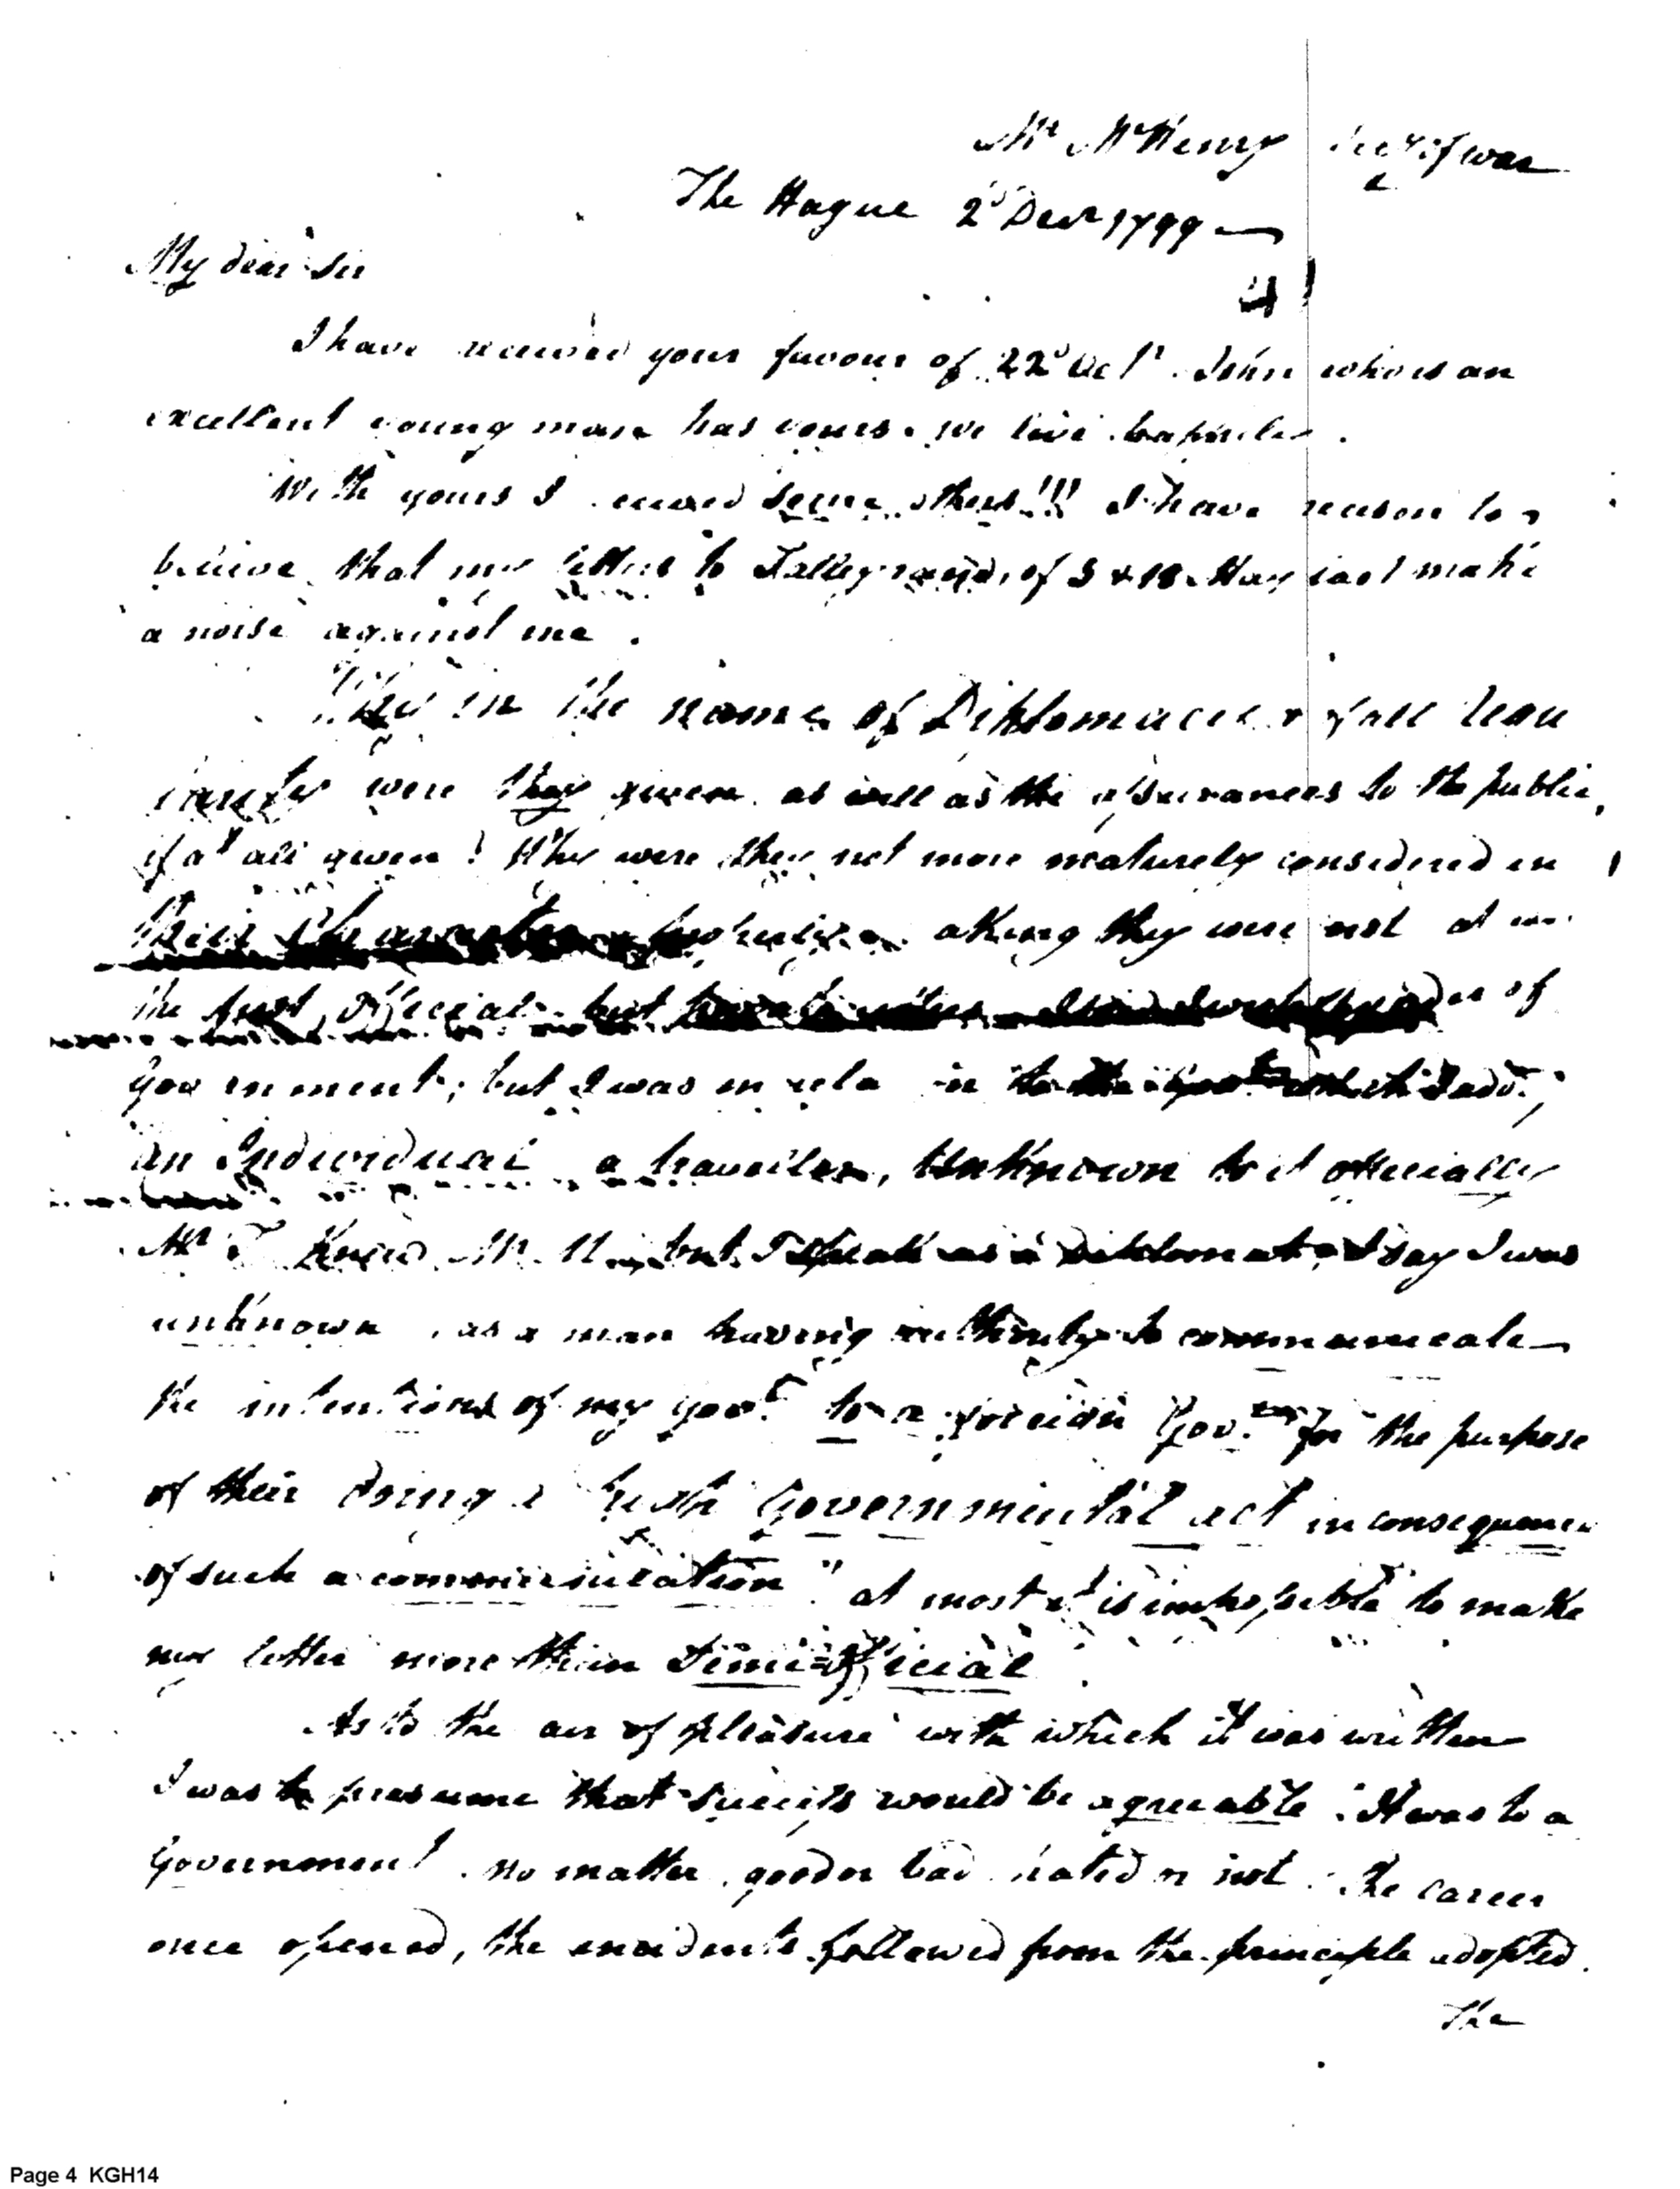 Mr McHenry Secy of war
The Hague 2d Decr 1799
My dear Sir
4
I have received your favour of 22d Octr. John who is an
excellent young man has yours. we live happily.
With yours I received some others!!! I have reason to
believe that my letters to Talleyrand of 5 & 18 May last make
a noise against me.
Why in the name of Diplomacie & of all
were they given as well as the assurances to the public,
if at all given? Why were they not more maturely considered in
their character taking they were not at
the first official but of
Government; but I was in to the
an Individual a traveller, Unknown to it officially
Mr T Knew Mr M but I speak as a Diplomat, I say I was
unknown, as a man having authority to communicate
the intentions of my govt to a foreign Govt for the purpose
of their doing a Governmental act in consequence
of such a communication" at most it is impossible to make
my letter more than Semi-official
As to the air of pleasure with which it was written
I was to presume that success would be agreeable. It was to a
Government. no matter, good or bad hated or not. The career
once opened, the incidents followed from the principle adopted.
The
Page 4 KGH14